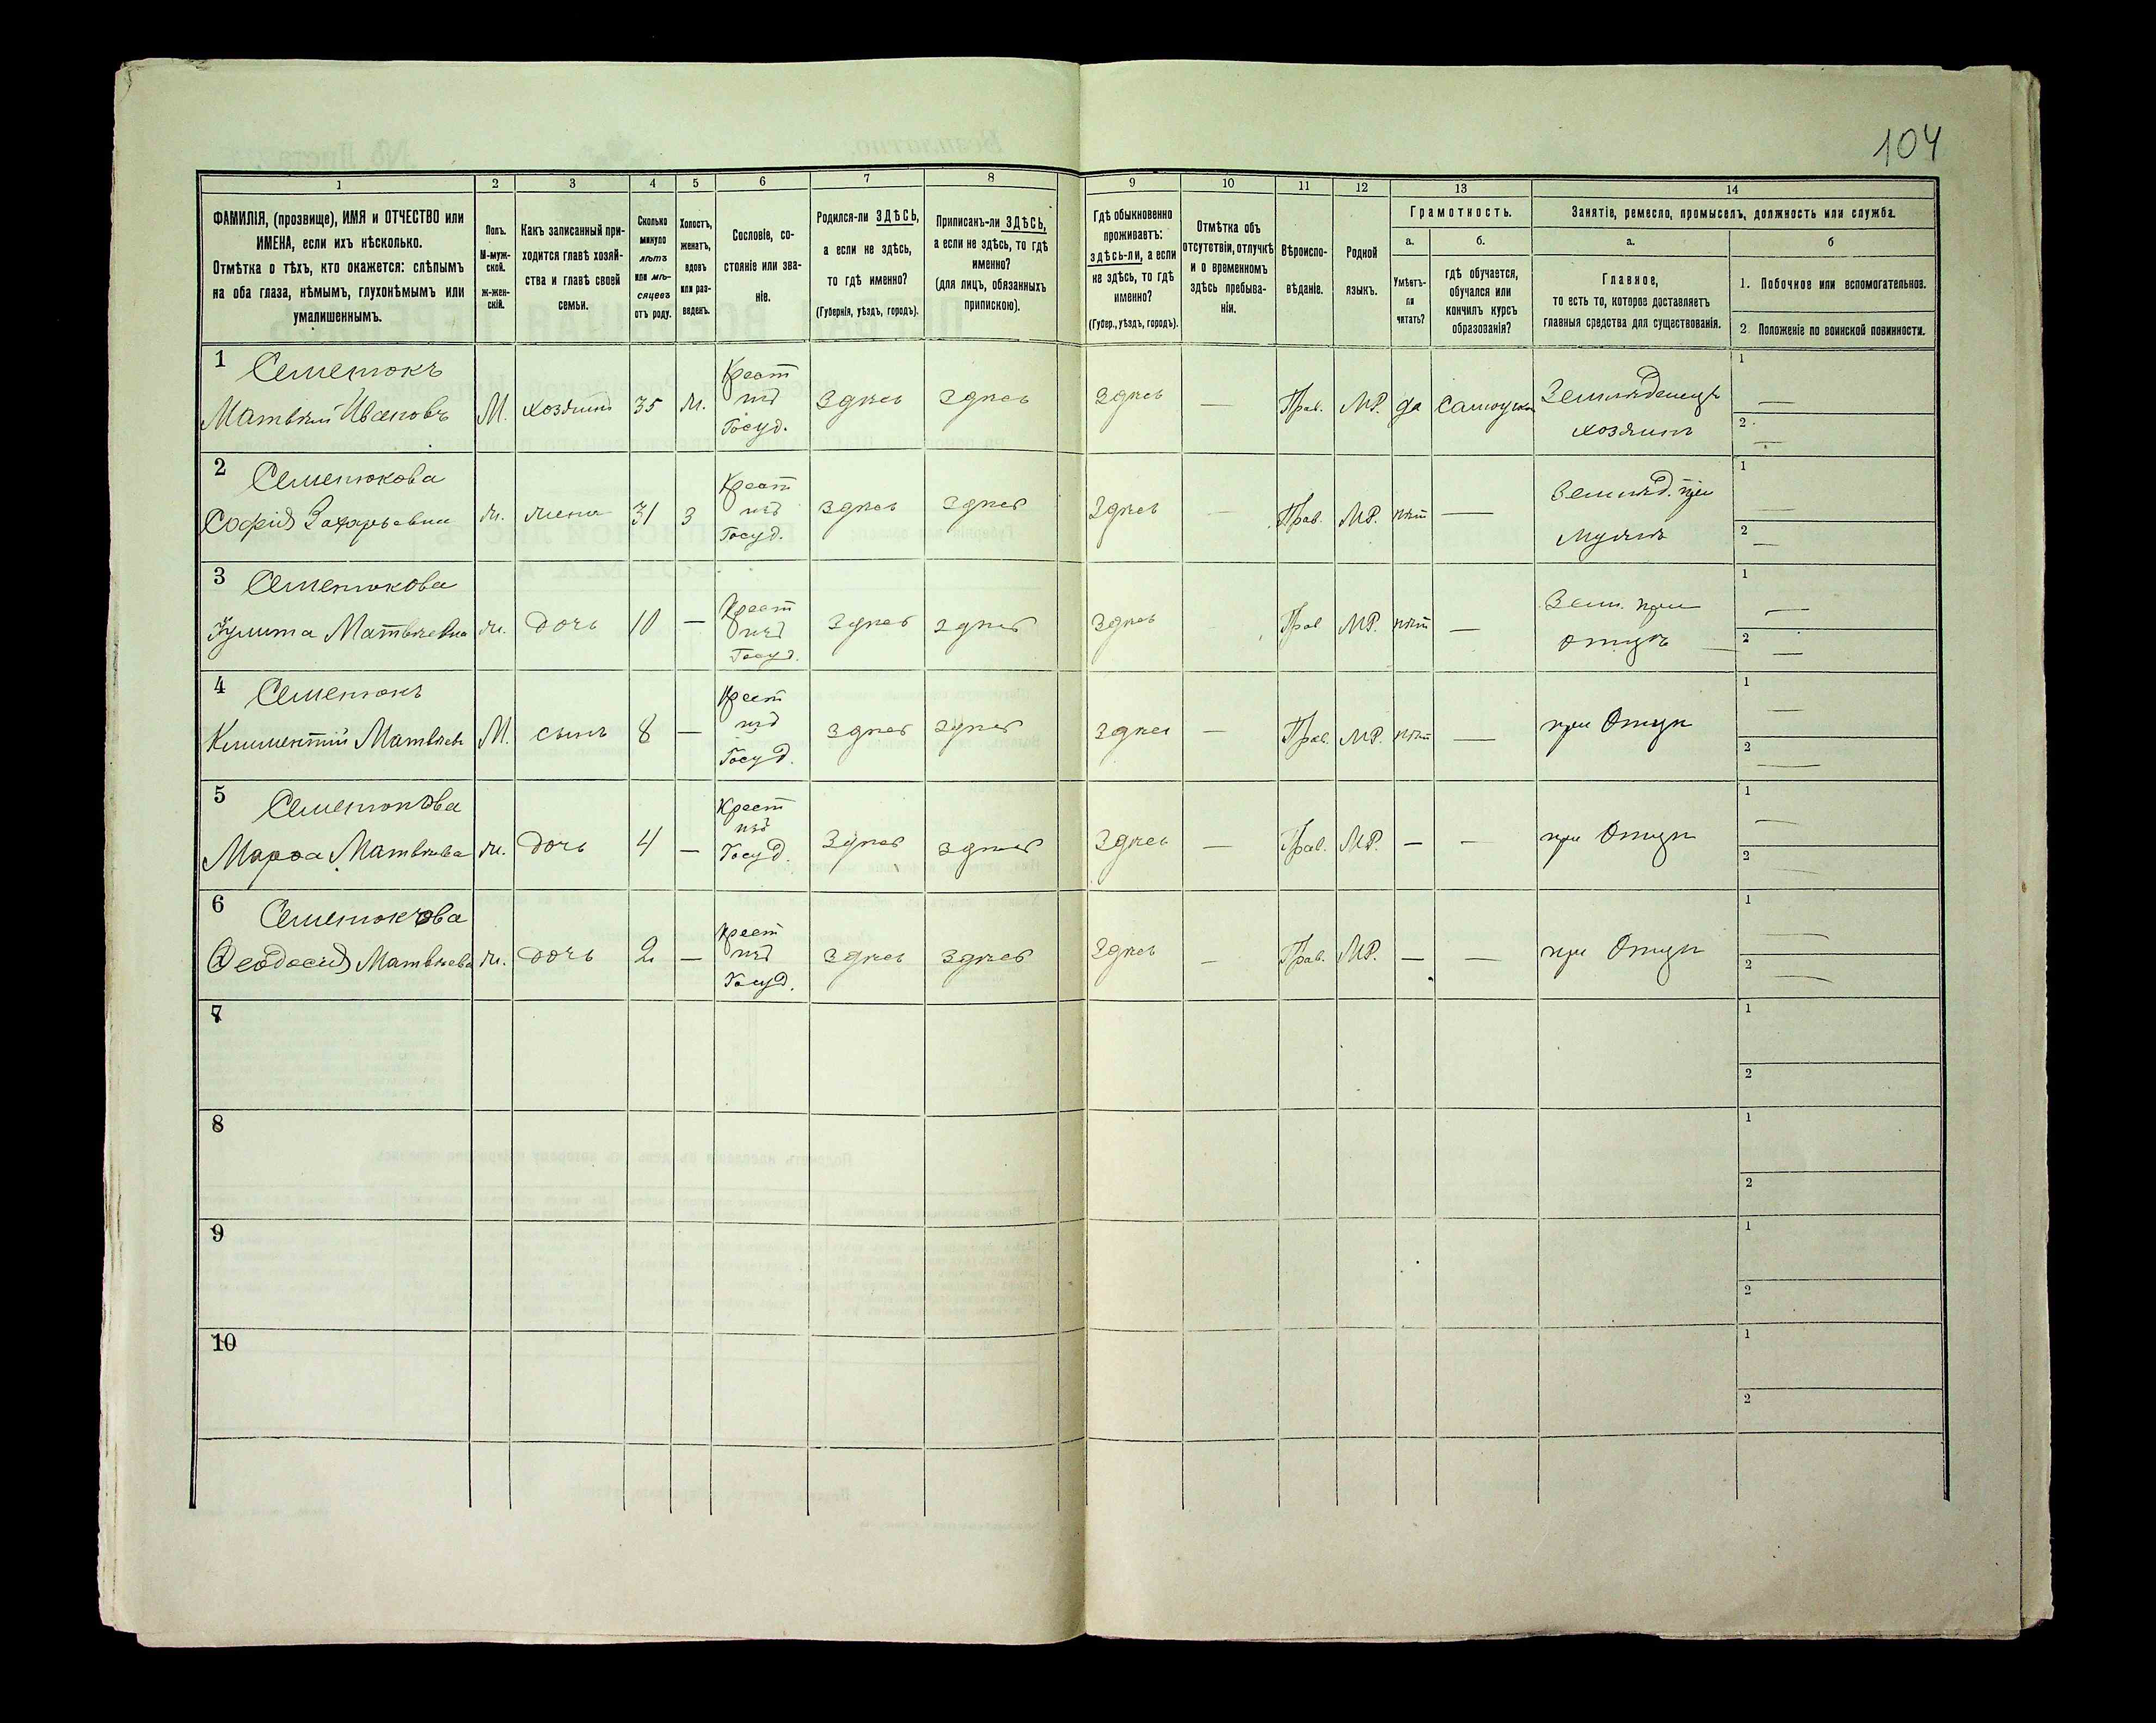 104
1 2 3 4 5 6 7 8 9 10 11 12 13 14
ФАМИЛІЯ, (прозвище), ИМЯ и ОТЧЕСТВО или
ИМЕНА, если ихъ нѣсколько.
Отмѣтка о тѣхъ, кто окажется: слѣпымъ
на оба глаза, нѣмымъ, глухонѣмымъ или
умалишеннымъ.
Полъ.
М-муж-
ской.
ж-жен-
скій.
Какъ записанный при-
ходится главѣ хозяй-
ства и главѣ своей
семьи.
Сколько
минуло
лѣтъ
или мѣ-
сяцевъ
отъ роду.
Холостъ,
женатъ,
вдовъ
или раз-
веденъ.
Сословіе, со-
стояніе или зва-
ніе.
Родился-ли ЗДѢСЬ,
а если не здѣсь,
то гдѣ именно?
(Губернія, уѣздъ, городъ).
Приписанъ-ли ЗДѢСЬ,
а если не здѣсь, то гдѣ
именно?
(для лицъ, обязанныхъ
припискою).
Гдѣ обыкновенно
проживаетъ:
здѣсь-ли, а если
не здѣсь, то гдѣ
именно?
(Губер., уѣздъ, городъ).
Отмѣтка объ
отсутствіи, отлучкѣ
и о временномъ
здѣсь пребыва-
ніи.
Вѣроиспо-
вѣданіе.
Родной
языкъ.
Грамотность.
а.
Умѣетъ-
ли
читать?
б.
гдѣ обучается,
обучался или
кончилъ курсъ
образованія?
Занятіе, ремесло, промыселъ, должность или служба.
а.
Главное,
то есть то, которое доставляетъ
главныя средства для существованія.
б
1. Побочное или вспомогательное.
2. Положеніе по воинской повинности.
1 Семенюкъ
Матвѣй Ивановъ М. хозяинъ 35 ж. Крест изъ Госуд. Здѣсь Здѣсь Здѣсь — Прав. МР. да Земледелецъ хозяинъ
1 —
2 —
2 Семенюкова
Софія Захарьевна ж. жена 31 З Крест изъ Госуд. Здѣсь Здѣсь Здѣсь — Прав. МР. нѣт — Землед. при мужѣ
1 —
2 —
3 Семенюкова
Улита Матвѣевна ж. дочь 10 — Крест изъ Госуд. Здѣсь Здѣсь Здѣсь Прав МР. нѣт — Зем. при отцѣ
1 —
2 —
4 Семенюкъ
Климентій Матвѣев М. сынъ 8 — Крест изъ Госуд. Здѣсь Здѣсь Здѣсь — Прав. МР. нѣт — при Отцѣ
1 —
2 —
5 Семенюкова
Марѳа Матвѣева ж. дочь 4 — Крест изъ Госуд. Здѣсь Здѣсь Здѣсь — Прав. МР. — — при Отцѣ
1 —
2 —
6 Семенюкова
Ѳеодосія Матвѣева ж. дочь 2 — Крест изъ Госуд. Здѣсь Здѣсь Здѣсь — Прав. МР. — — при Отцѣ
1 —
2 —
7
1
2
8
1
2
9
1
2
10
1
2